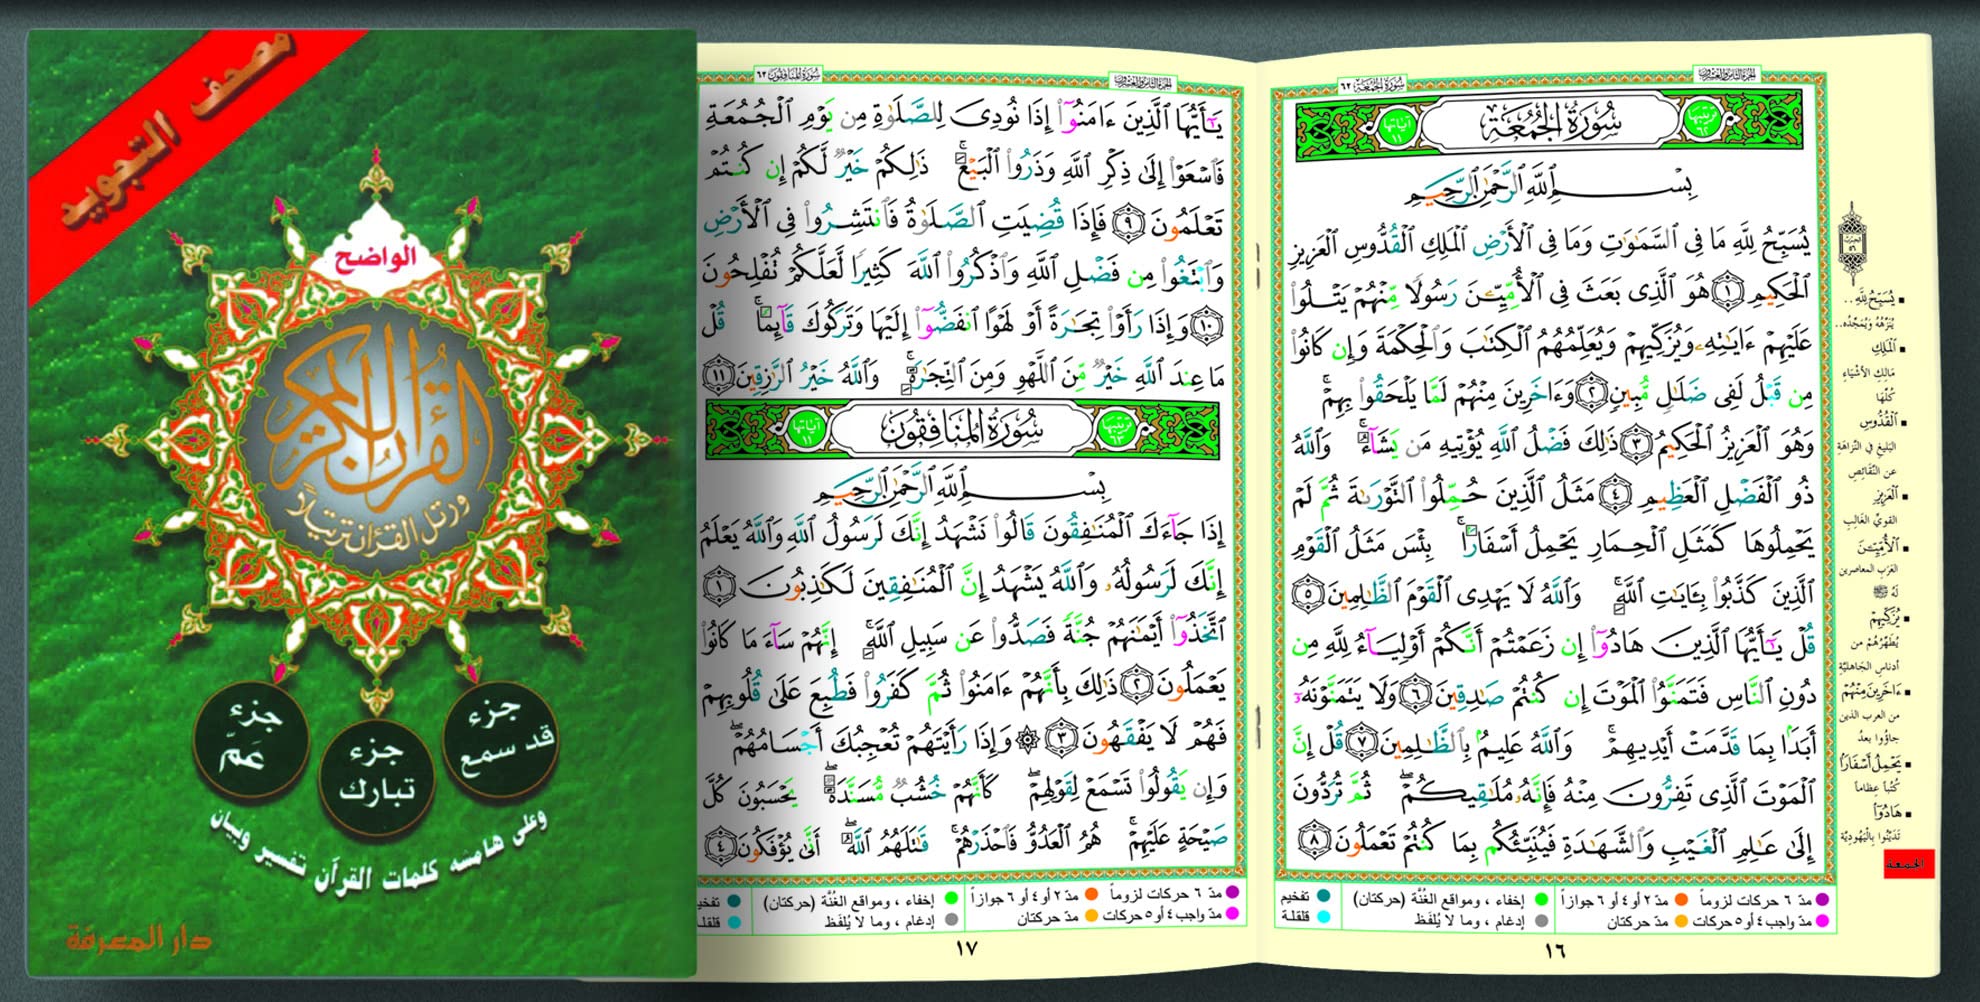 مصحف التجويد
الواضح
القرآن الكريم
ورتل القرآن ترتيلاً
جزء قد سمع
جزء تبارك
جزء عَمّ
وعلى هامشه كلمات القرآن تفسير وبيان
دار المعرفة
سُورَةُ الجُمُعَة ٦٢
سُورَةُ الجُمُعَةِ
ترتيبها ٦٢
آياتها ١١
بِسْمِ ٱللَّهِ ٱلرَّحْمَٰنِ ٱلرَّحِيمِ
يُسَبِّحُ لِلَّهِ مَا فِى ٱلسَّمَٰوَٰتِ وَمَا فِى ٱلْأَرْضِ ٱلْمَلِكِ ٱلْقُدُّوسِ ٱلْعَزِيزِ
ٱلْحَكِيمِ ١ هُوَ ٱلَّذِى بَعَثَ فِى ٱلْأُمِّيِّـۧنَ رَسُولًا مِّنْهُمْ يَتْلُوا۟
عَلَيْهِمْ ءَايَٰتِهِۦ وَيُزَكِّيهِمْ وَيُعَلِّمُهُمُ ٱلْكِتَٰبَ وَٱلْحِكْمَةَ وَإِن كَانُوا۟
مِن قَبْلُ لَفِى ضَلَٰلٍ مُّبِينٍ ٢ وَءَاخَرِينَ مِنْهُمْ لَمَّا يَلْحَقُوا۟ بِهِمْ ۚ
وَهُوَ ٱلْعَزِيزُ ٱلْحَكِيمُ ٣ ذَٰلِكَ فَضْلُ ٱللَّهِ يُؤْتِيهِ مَن يَشَآءُ ۚ وَٱللَّهُ
ذُو ٱلْفَضْلِ ٱلْعَظِيمِ ٤ مَثَلُ ٱلَّذِينَ حُمِّلُوا۟ ٱلتَّوْرَىٰةَ ثُمَّ لَمْ
يَحْمِلُوهَا كَمَثَلِ ٱلْحِمَارِ يَحْمِلُ أَسْفَارًۢا ۚ بِئْسَ مَثَلُ ٱلْقَوْمِ
ٱلَّذِينَ كَذَّبُوا۟ بِـَٔايَٰتِ ٱللَّهِ ۚ وَٱللَّهُ لَا يَهْدِى ٱلْقَوْمَ ٱلظَّٰلِمِينَ ٥
قُلْ يَٰٓأَيُّهَا ٱلَّذِينَ هَادُوٓا۟ إِن زَعَمْتُمْ أَنَّكُمْ أَوْلِيَآءُ لِلَّهِ مِن
دُونِ ٱلنَّاسِ فَتَمَنَّوُا۟ ٱلْمَوْتَ إِن كُنتُمْ صَٰدِقِينَ ٦ وَلَا يَتَمَنَّوْنَهُۥٓ
أَبَدًۢا بِمَا قَدَّمَتْ أَيْدِيهِمْ ۚ وَٱللَّهُ عَلِيمٌۢ بِٱلظَّٰلِمِينَ ٧ قُلْ إِنَّ
ٱلْمَوْتَ ٱلَّذِى تَفِرُّونَ مِنْهُ فَإِنَّهُۥ مُلَٰقِيكُمْ ۖ ثُمَّ تُرَدُّونَ
إِلَىٰ عَٰلِمِ ٱلْغَيْبِ وَٱلشَّهَٰدَةِ فَيُنَبِّئُكُم بِمَا كُنتُمْ تَعْمَلُونَ ٨
يُسَبِّحُ لِلَّهِ..
يُنَزِّهُهُ وَيُمَجِّدُه..
ٱلْمَلِكِ
مَالِكِ الأشْيَاءِ
كُلِّهَا
ٱلْقُدُّوسِ
البَلِيغِ فِي النَّزَاهَةِ
عن النَّقَائِصِ
ٱلْعَزِيزِ
القويِّ الغَالِبِ
ٱلْأُمِّيِّـۧنَ
العَرَبِ المعاصرين
لَهُ ﷺ
يُزَكِّيهِمْ
يُطَهِّرُهُمْ من
أدناسِ الجَاهليَّةِ
ءَاخَرِينَ مِنْهُمْ
من العرب الذين
جاؤُوا بعدُ
يَحْمِلُ أَسْفَارًا
كُتُباً عِظاماً
هَادُوٓا۟
تَدَيَّنُوا بِاليَهُوديَّةِ
الجمعة
مدّ ٦ حركات لزوماً
مدّ ٢ أو ٤ أو ٦ جوازاً
إخفاء ، ومواقع الغُنَّة (حركتان)
تفخيم
مدّ واجب ٤ أو ٥ حركات
مدّ حركتان
إدغام ، وما لا يُلفَظ
قلقلة
١٦
سُورَةُ المنَافِقُون ٦٣
يَٰٓأَيُّهَا ٱلَّذِينَ ءَامَنُوٓا۟ إِذَا نُودِىَ لِلصَّلَوٰةِ مِن يَوْمِ ٱلْجُمُعَةِ
فَٱسْعَوْا۟ إِلَىٰ ذِكْرِ ٱللَّهِ وَذَرُوا۟ ٱلْبَيْعَ ۚ ذَٰلِكُمْ خَيْرٌ لَّكُمْ إِن كُنتُمْ
تَعْلَمُونَ ٩ فَإِذَا قُضِيَتِ ٱلصَّلَوٰةُ فَٱنتَشِرُوا۟ فِى ٱلْأَرْضِ
وَٱبْتَغُوا۟ مِن فَضْلِ ٱللَّهِ وَٱذْكُرُوا۟ ٱللَّهَ كَثِيرًا لَّعَلَّكُمْ تُفْلِحُونَ
١٠ وَإِذَا رَأَوْا۟ تِجَٰرَةً أَوْ لَهْوًا ٱنفَضُّوٓا۟ إِلَيْهَا وَتَرَكُوكَ قَآئِمًا ۚ قُلْ
مَا عِندَ ٱللَّهِ خَيْرٌ مِّنَ ٱللَّهْوِ وَمِنَ ٱلتِّجَٰرَةِ ۚ وَٱللَّهُ خَيْرُ ٱلرَّٰزِقِينَ ١١
سُورَةُ المُنَافِقُونَ
ترتيبها ٦٣
آياتها ١١
بِسْمِ ٱللَّهِ ٱلرَّحْمَٰنِ ٱلرَّحِيمِ
إِذَا جَآءَكَ ٱلْمُنَٰفِقُونَ قَالُوا۟ نَشْهَدُ إِنَّكَ لَرَسُولُ ٱللَّهِ وَٱللَّهُ يَعْلَمُ
إِنَّكَ لَرَسُولُهُۥ وَٱللَّهُ يَشْهَدُ إِنَّ ٱلْمُنَٰفِقِينَ لَكَٰذِبُونَ ١
ٱتَّخَذُوٓا۟ أَيْمَٰنَهُمْ جُنَّةً فَصَدُّوا۟ عَن سَبِيلِ ٱللَّهِ ۚ إِنَّهُمْ سَآءَ مَا كَانُوا۟
يَعْمَلُونَ ٢ ذَٰلِكَ بِأَنَّهُمْ ءَامَنُوا۟ ثُمَّ كَفَرُوا۟ فَطُبِعَ عَلَىٰ قُلُوبِهِمْ
فَهُمْ لَا يَفْقَهُونَ ٣ ۞ وَإِذَا رَأَيْتَهُمْ تُعْجِبُكَ أَجْسَامُهُمْ ۖ
وَإِن يَقُولُوا۟ تَسْمَعْ لِقَوْلِهِمْ ۖ كَأَنَّهُمْ خُشُبٌ مُّسَنَّدَةٌ ۖ يَحْسَبُونَ كُلَّ
صَيْحَةٍ عَلَيْهِمْ ۚ هُمُ ٱلْعَدُوُّ فَٱحْذَرْهُمْ ۚ قَٰتَلَهُمُ ٱللَّهُ ۖ أَنَّىٰ يُؤْفَكُونَ ٤
مدّ ٦ حركات لزوماً
مدّ ٢ أو ٤ أو ٦ جوازاً
إخفاء ، ومواقع الغُنَّة (حركتان)
مدّ واجب ٤ أو ٥ حركات
مدّ حركتان
إدغام ، وما لا يُلفَظ
١٧